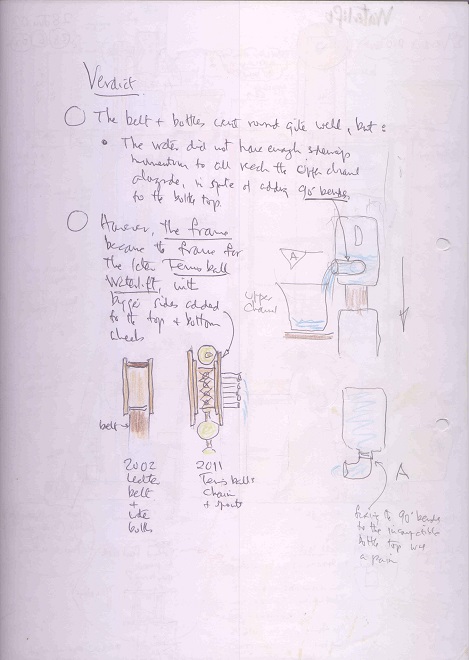 Verdict
The belt + bottles went round quite well, but:
• The water did not have enough
momentum to all reach the upper channel
alongside, in spite of adding 90° bends
to the bottle top.
However, the frame
became the frame for
the later Tennis ball
Waterlift, with
bigger sides added
to the top + bottom
wheels
A
upper
channel
belt
2002
belt
+
bottles
2011
Tennis balls
chain
+ spouts
A
fixing the 90° bends
to the incompatible
bottle top was
a pain